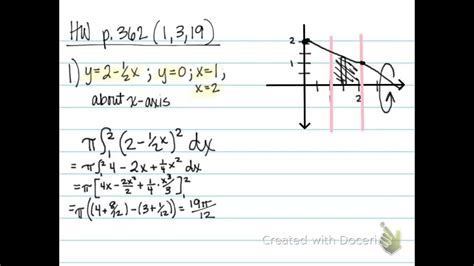 HW p.362 (1,3,19)
1) y=2-½x ; y=0; x=1,
x=2
about x-axis
π∫₁² (2-½x)² dx
= π∫₁² 4 - 2x + ¼x² dx
= π[4x - 2x²/2 + ¼·x³/3]²
= π((4 + 8/12) - (3 + 1/12)) = 19π/12
2
1
1
2
Created with Doceri